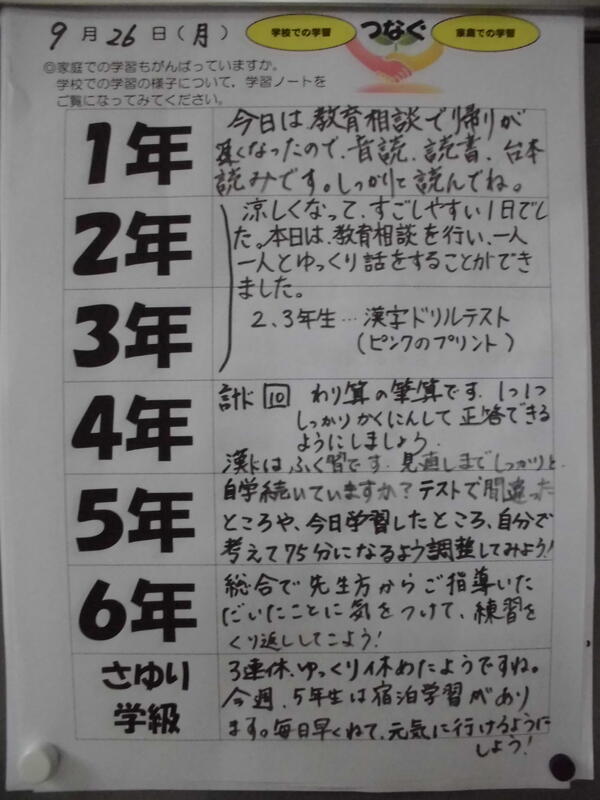 9月26日(月)
学校での学習
つなぐ
家庭での学習
◎家庭での学習もがんばっていますか。
学校での学習の様子について、学習ノートを
ご覧になってみてください。
1年
今日は教育相談で帰りが
遅くなったので、音読、読書、台本
読みです。しっかりと読んでね。
2年
涼しくなって、すごしやすい1日でし
た。本日は、教育相談を行い、一人
一人とゆっくり話をすることができ
ました。
3年
2、3年生…漢字ドリルテスト
(ピンクのプリント)
4年
計ド 10 わり算の筆算です。1つ1つ
しっかりかくにんして正答できる
ようにしましょう。
漢ドはふく習です。見直しまでしっかりと。
5年
自学続いていますか?テストで間違った
ところや、今日学習したところ、自分で
考えて75分になるよう調整してみよう!
6年
総合で先生方からご指導いた
だいたことに気をつけて、練習を
くり返ししてこよう!
さゆり
学級
3連休、ゆっくり休めたようですね。
今週、5年生は宿泊学習があり
ます。毎日早くねて、元気に行けるように
しよう!